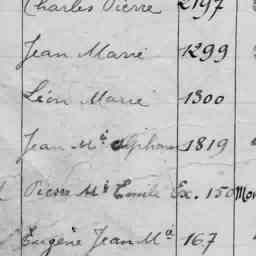 Charles Pierre 2197
Jean Marie 1299
Léon Marie 1300
Jean Mie Alphon 1819
Pierre Mie Emile Ex. 150 Mor
Eugène Jean Mie 167